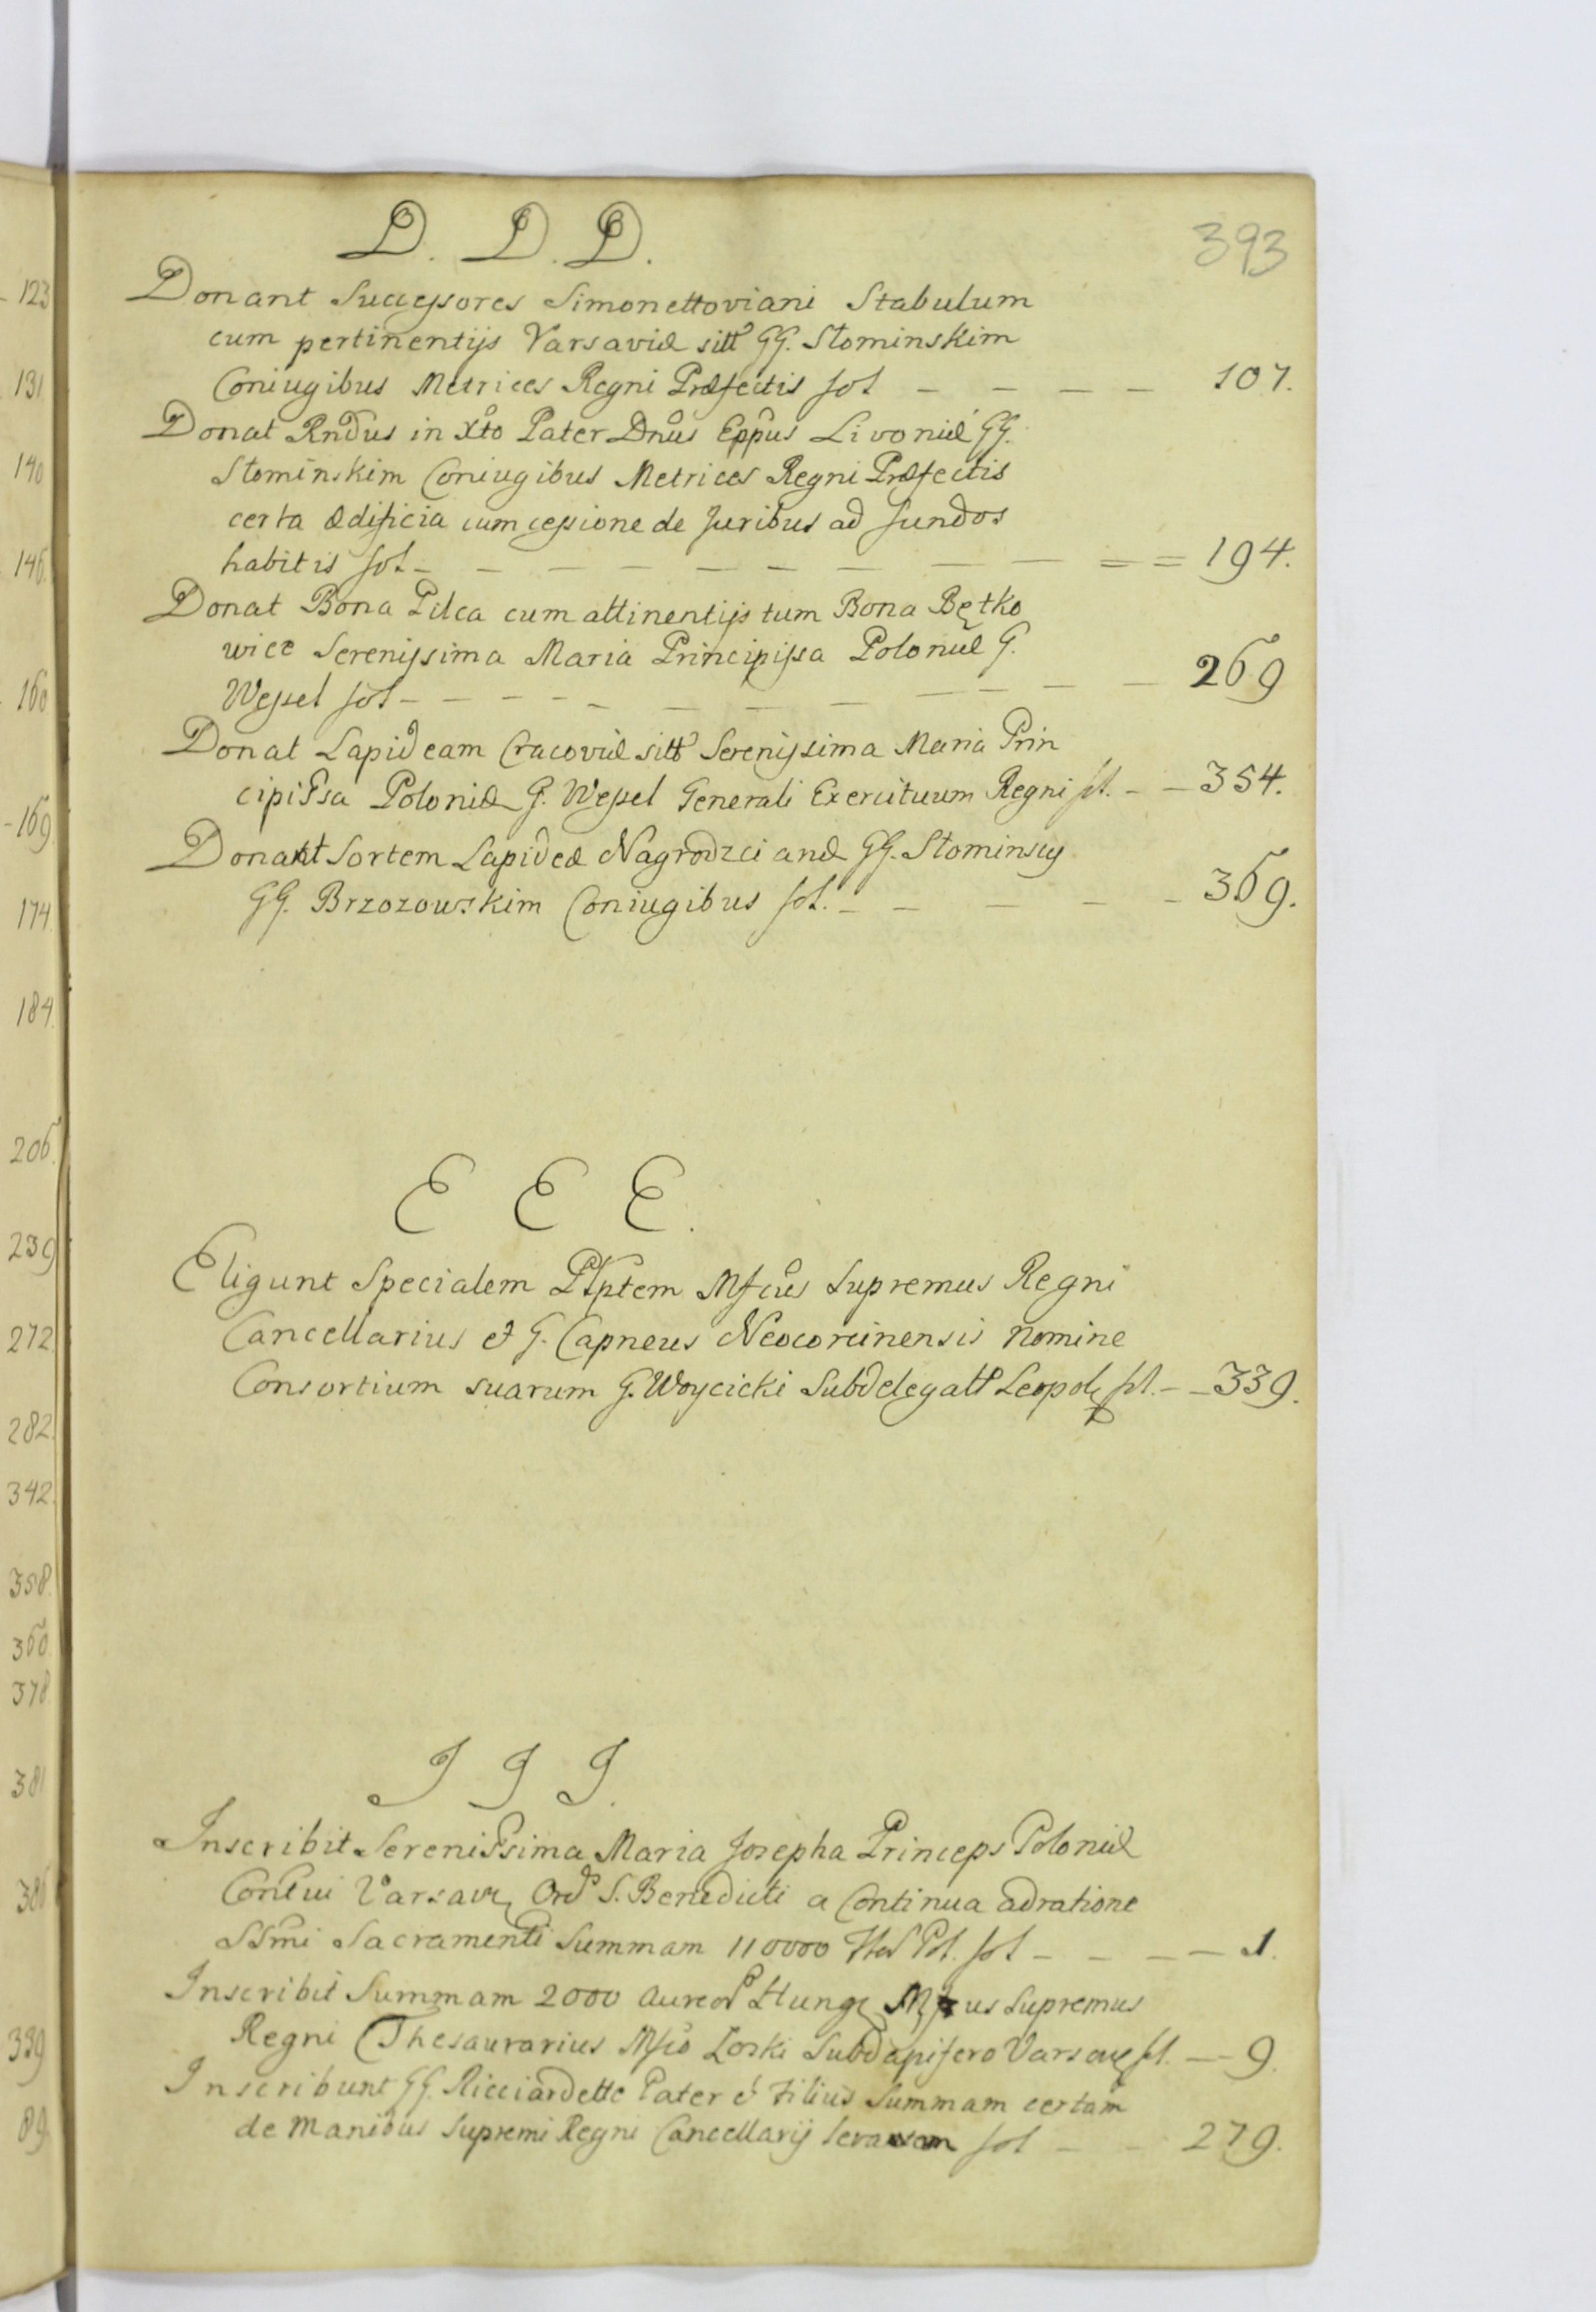 393
D. D. D.
Donant Successores Simonettoviani Stabulum
cum pertinentijs Varsaviæ sitt GG. Słominskim
Coniugibus Metrices Regni Præfectis fol — — — — 107.
Donat Rndus in Xto Pater Dnus Eppus Livoniæ GG.
Słominskim Coniugibus Metrices Regni Præfectis
certa ædificia cum cessione de Juribus ad fundos
habitis fol — — — — — — — — = = 194.
Donat Bona Pilca cum attinentijs tum Bona Bętko
wice Serenissima Maria Principissa Poloniæ G.
Wessel fol — — — — — — — — — — 269
Donat Lapideam Cracoviæ sitt Serenissima Maria Prin
cipissa Poloniæ G. Wessel Generali Exercituum Regni fl. — — 354.
Donant Sortem Lapideæ Nagrodzcianæ GG. Słominscy
GG. Brzozowskim Coniugibus fol. — — — — — 369.
E E E.
Eligunt Specialem Plptem Mfcus Supremus Regni
Cancellarius et G. Capneus Neocorcinensis nomine
Consortium suarum G. Woycicki Subdelegatt Leopol fl. — — 339.
J J J.
Inscribit Serenissima Maria Josepha Princeps Poloniæ
Contui Varsav Ord S. Benedicti a Continua adratione
SSmi Sacramenti Summam 110000 Fl Pol. fol — — — — 1.
Inscribit Summam 2000 aureor Hung Mfcus Supremus
Regni Thesaurarius Mfco Łoski Subdapifero Varsav fl. — 9.
Inscribunt GG. Ricciardette Pater et Filius Summam certam
de Manibus Supremi Regni Cancellarij fol — — 279.
123
131
140
146.
160
169
174
184.
206.
239
272
282.
342.
358.
360
378
381
386
339
89.